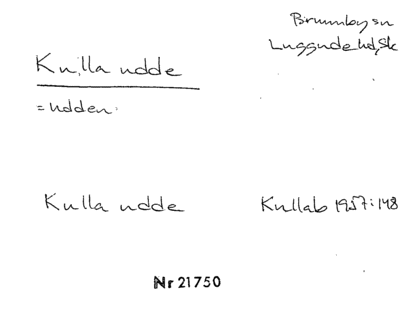 Brunnby sn
Luggude hd, Sk
Kulla udde
= udden.
Kulla udde Kullab 1957:148
Nr 21750